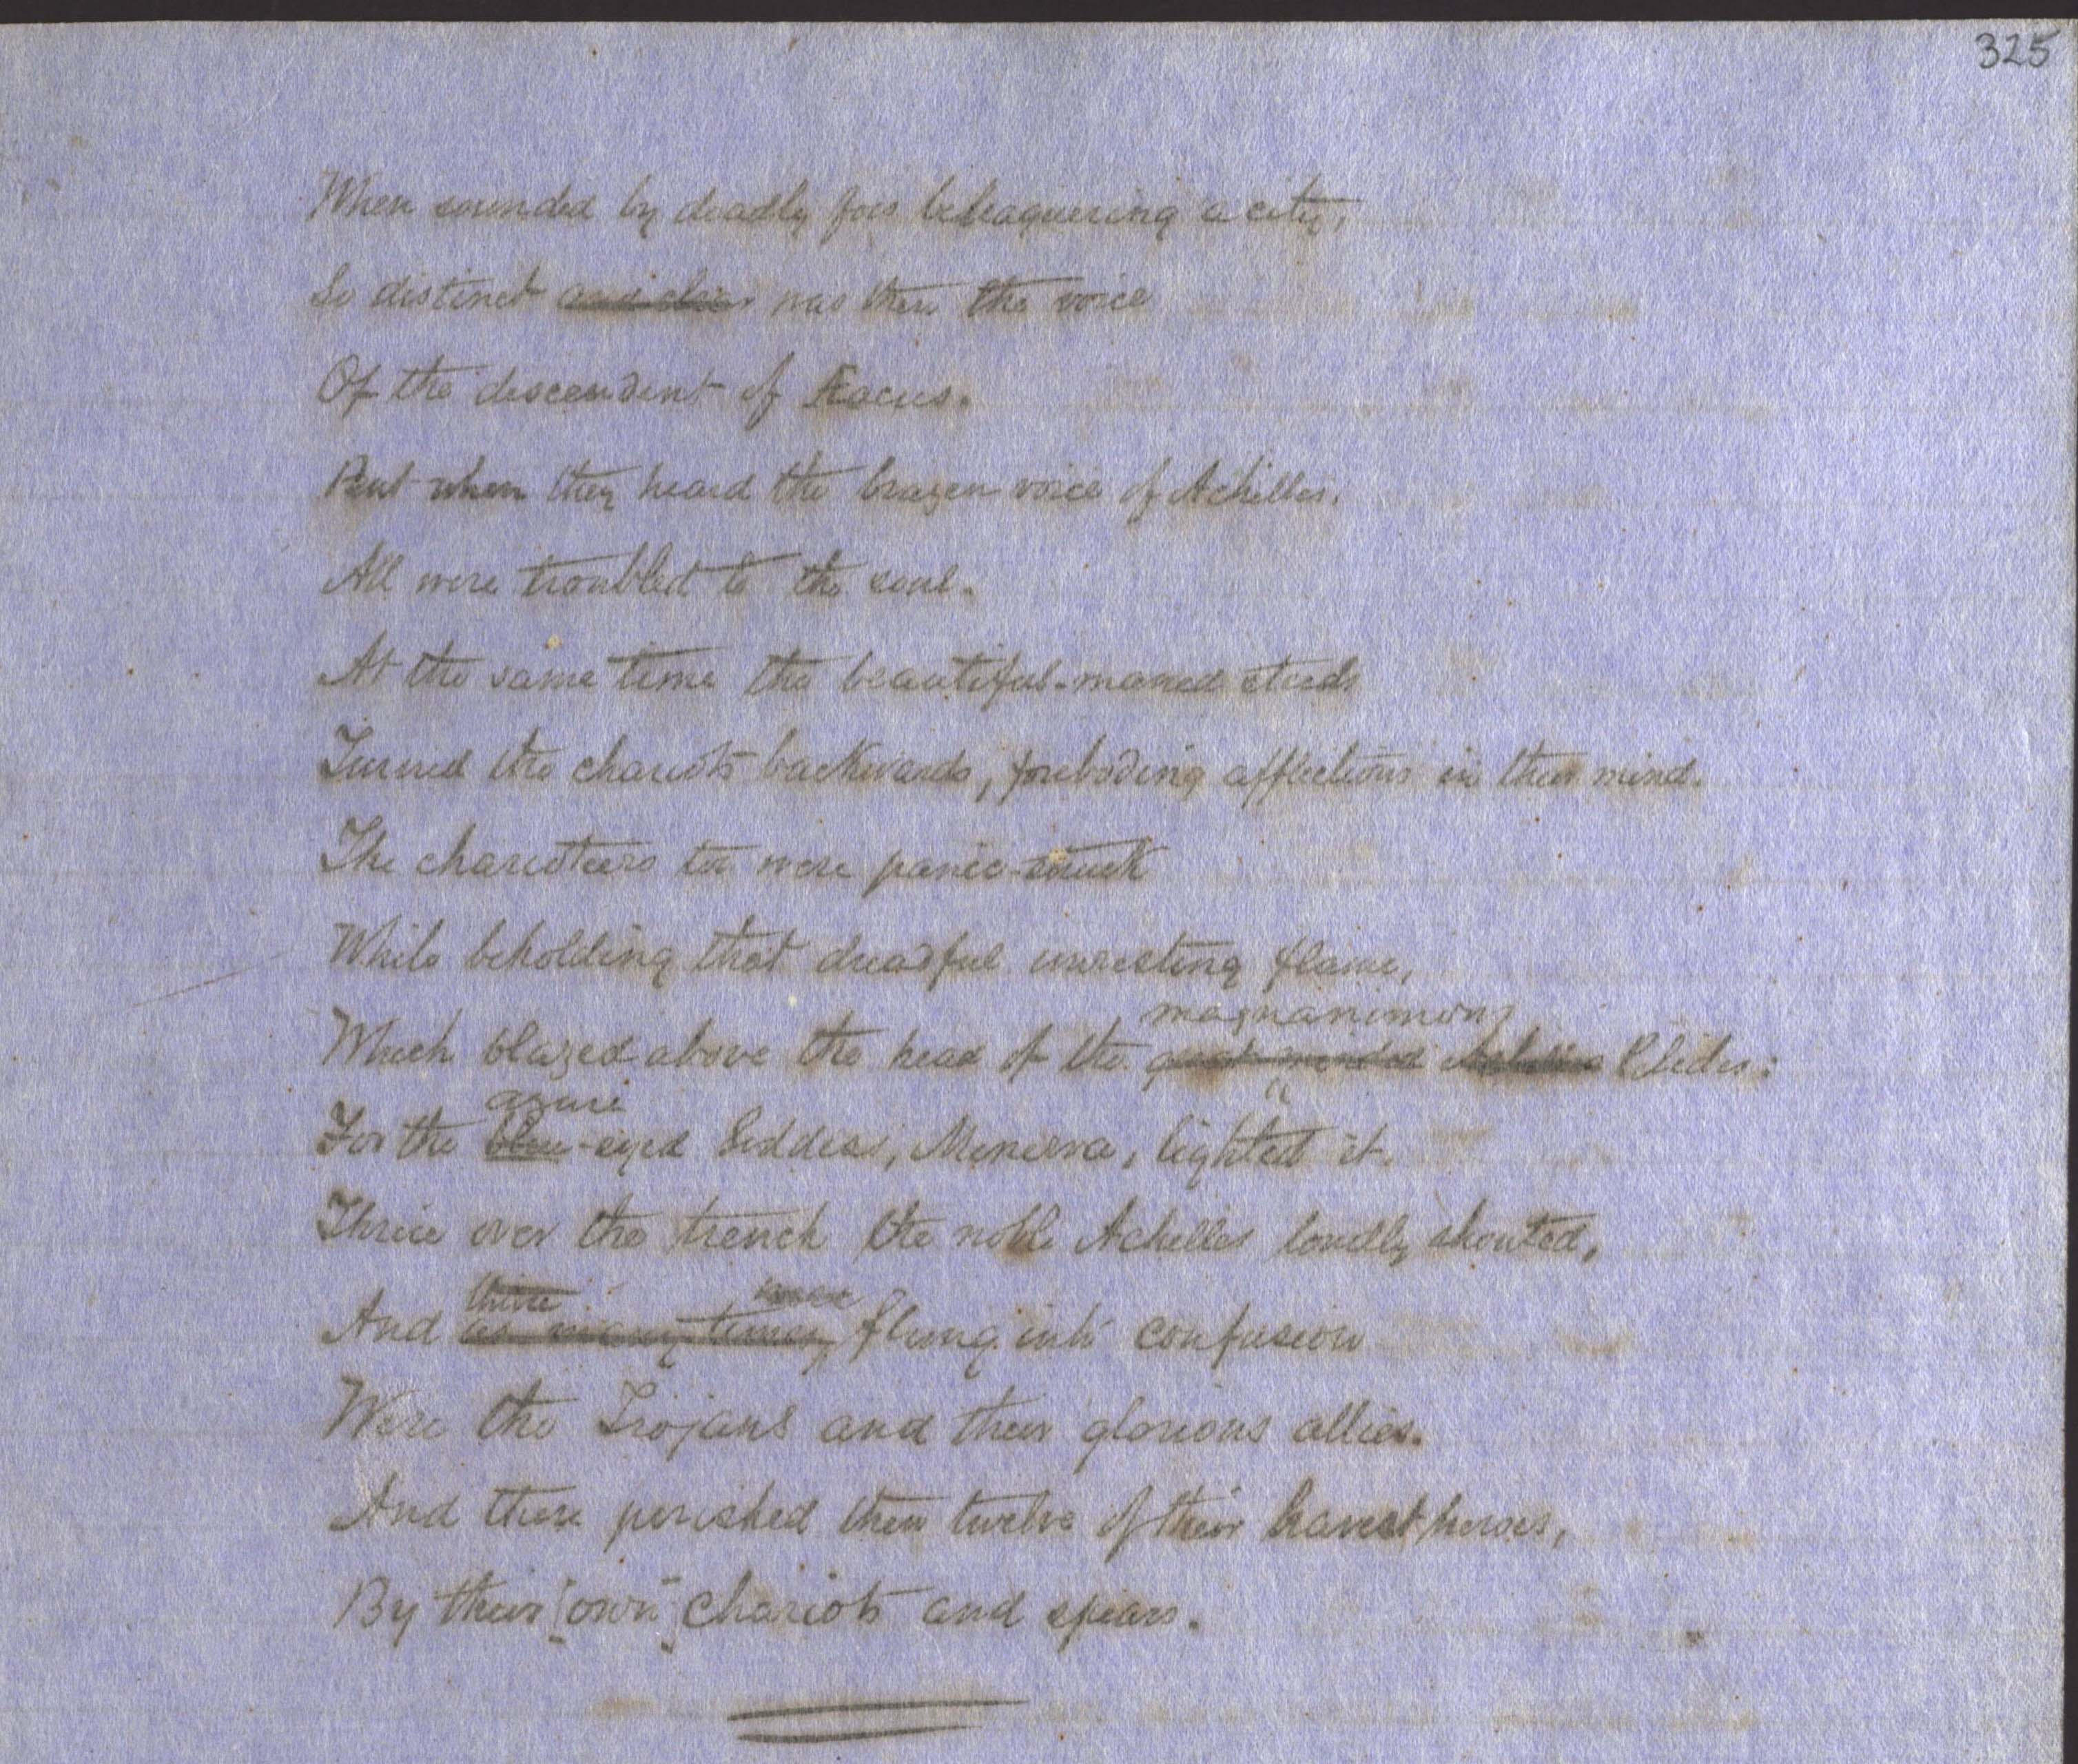 325
When sounded by deadly foes beleaguering a city,
So distinct and clear was then the voice
Of the descendent of Æacus.
But when they heard the brazen voice of Achilles,
All were troubled to the soul.
At the same time the beautiful-maned steeds
Turned the chariots backwards, foreboding afflictions in their mind.
The charioteers too were panic-struck
While beholding that dreadful unresting flame,
magnanimous
Which blazed above the head of the great-minded Pelides:
azure
For the blue-eyed Goddess, Minerva, lighted it.
Thrice over the trench the noble Achilles loudly shouted,
thrice
And as many times flung into confusion
Were the Trojans and their glorious allies.
And there perished then twelve of their bravest heroes,
By their [own] chariots and spears.